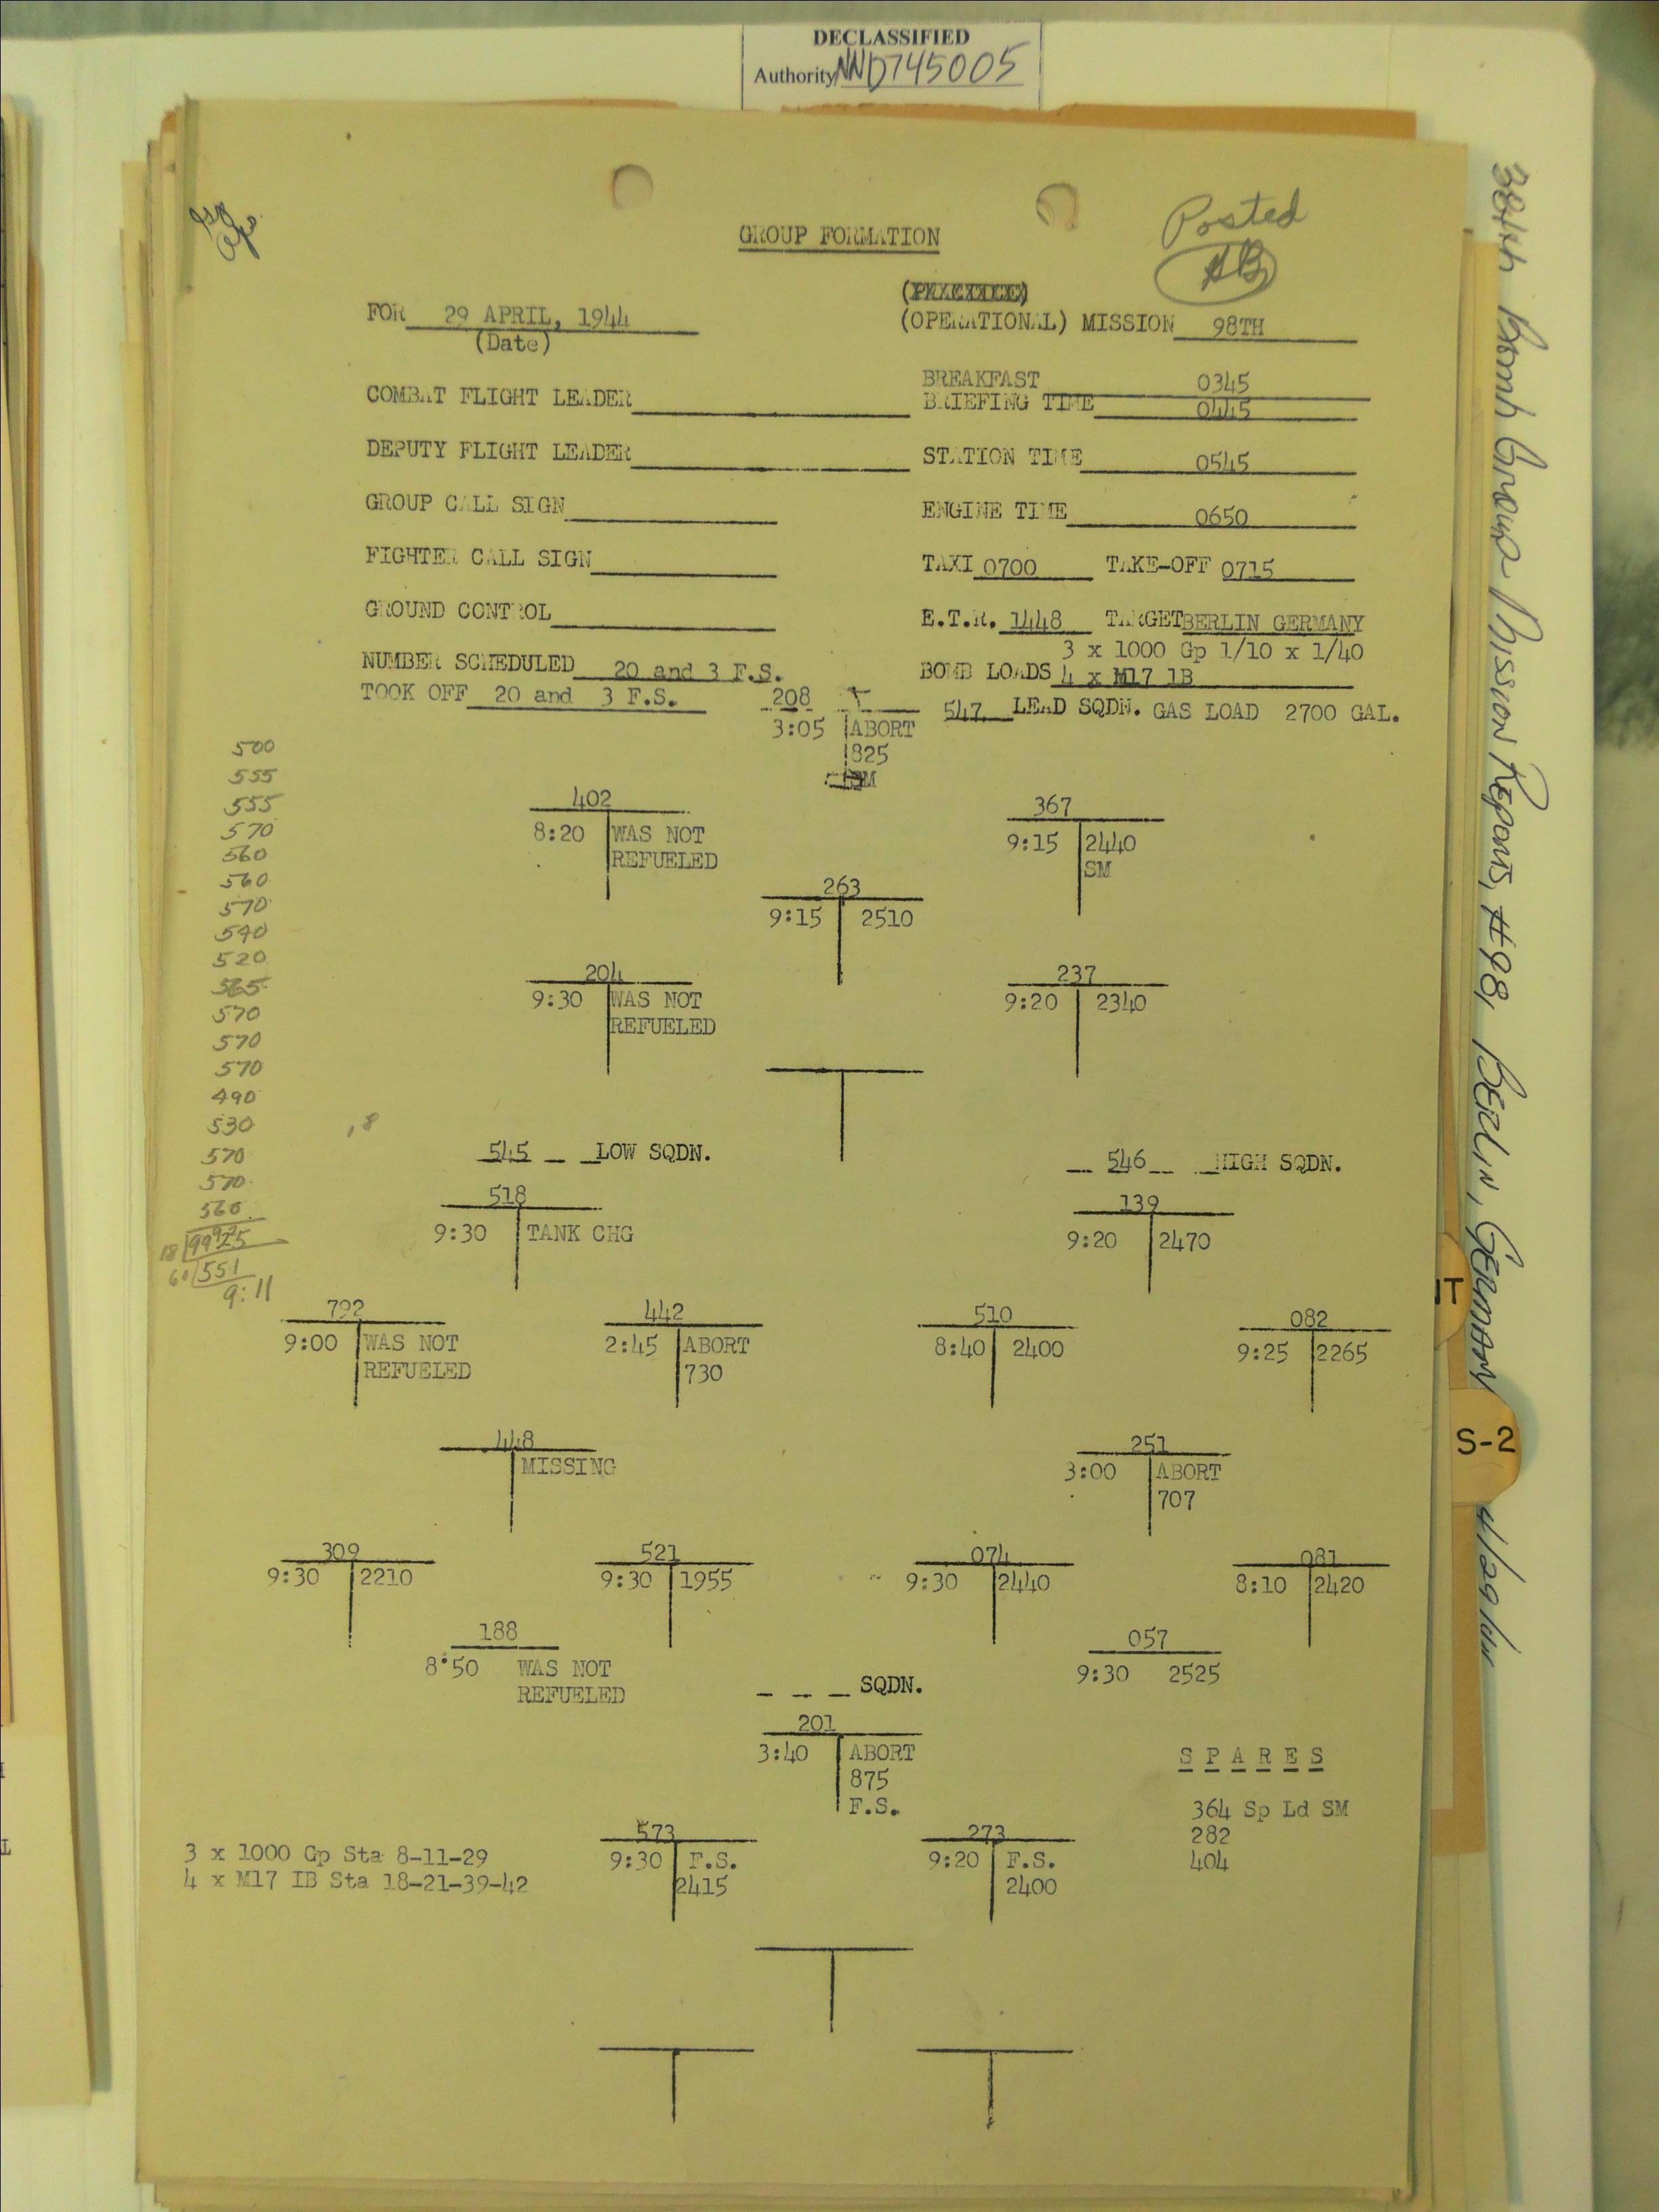 DECLASSIFIED
Authority NND745005
Posted
AB
GROUP FORMATION
(PRACTICE)
FOR 29 APRIL, 1944
(Date)
(OPERATIONAL) MISSION 98TH
BREAKFAST 0345
COMBAT FLIGHT LEADER
BRIEFING TIME 0445
DEPUTY FLIGHT LEADER
STATION TIME 0545
GROUP CALL SIGN
ENGINE TIME 0650
FIGHTER CALL SIGN
TAXI 0700 TAKE-OFF 0715
GROUND CONTROL
E.T.R. 1448 TARGET BERLIN GERMANY
3 x 1000 Gp 1/10 x 1/40
NUMBER SCHEDULED 20 and 3 F.S.
BOMB LOADS 4 x M17 1B
TOOK OFF 20 and 3 F.S.
208
547 LEAD SQDN. GAS LOAD 2700 GAL.
3:05 ABORT
825
SM
402
8:20 WAS NOT
REFUELED
367
9:15 2440
SM
263
9:15 2510
204
9:30 WAS NOT
REFUELED
237
9:20 2340
545 LOW SQDN.
546 HIGH SQDN.
518
9:30 TANK CHG
139
9:20 2470
792
9:00 WAS NOT
REFUELED
442
2:45 ABORT
730
510
8:40 2400
082
9:25 2265
448
MISSING
251
3:00 ABORT
707
309
9:30 2210
521
9:30 1955
074
9:30 2440
081
8:10 2420
188
8:50 WAS NOT
REFUELED
057
9:30 2525
SQDN.
201
3:40 ABORT
875
F.S.
573
9:30 F.S.
2415
273
9:20 F.S.
2400
S P A R E S
364 Sp Ld SM
282
404
3 x 1000 Gp Sta 8-11-29
4 x M17 IB Sta 18-21-39-42
500
555
555
570
560
560
570
540
520
565
570
570
570
490
530
,8
570
570
560
18 9925
60 551
9:11
384th Bomb Group Mission Reports, #98, Berlin, Germany 4/29/44
IT
S-2